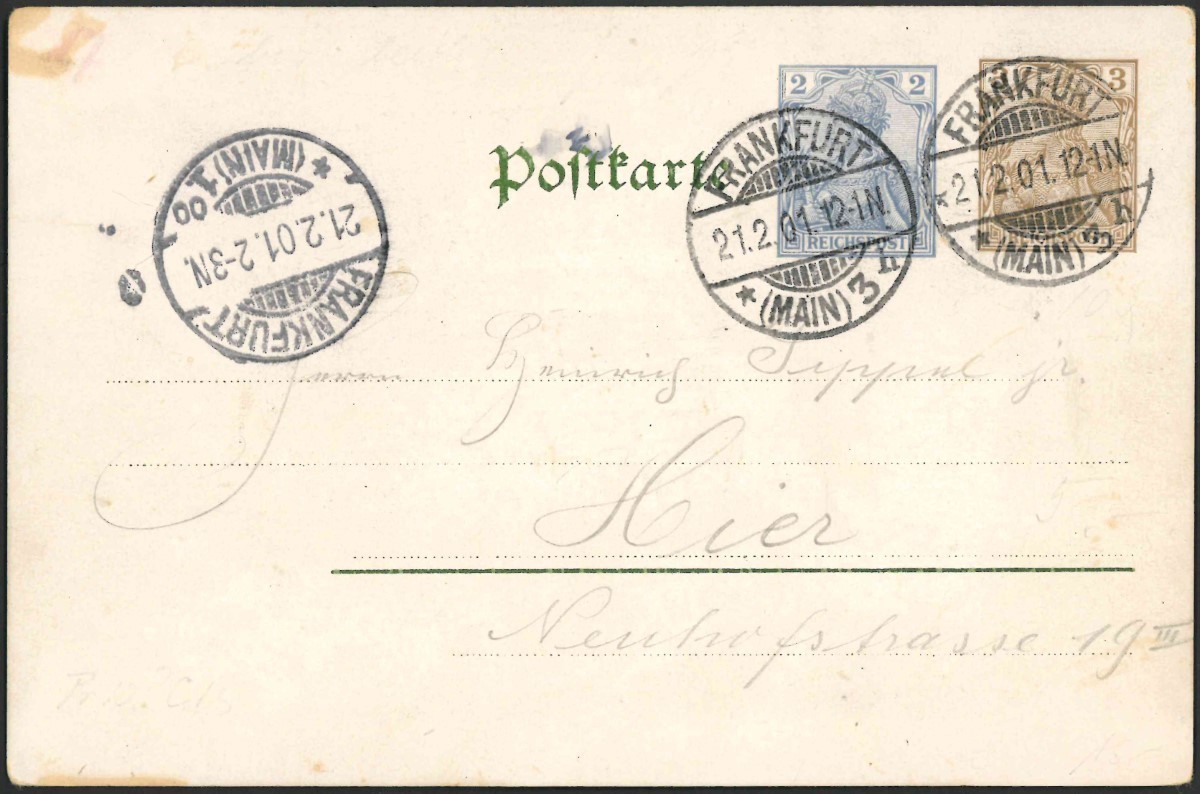 2 2
3
REICHSPOST
Postkarte
FRANKFURT
21.2.01.12-1N.
* (MAIN) 3 h
FRANKFURT
* 21.2.01.12-1N.
* (MAIN) 3 h
FRANKFURT
21.2.01.2-3N.
* (MAIN) 1.
00
Herrn Heinrich Sippel jr.
Hier
Neuhofstrasse 19 III